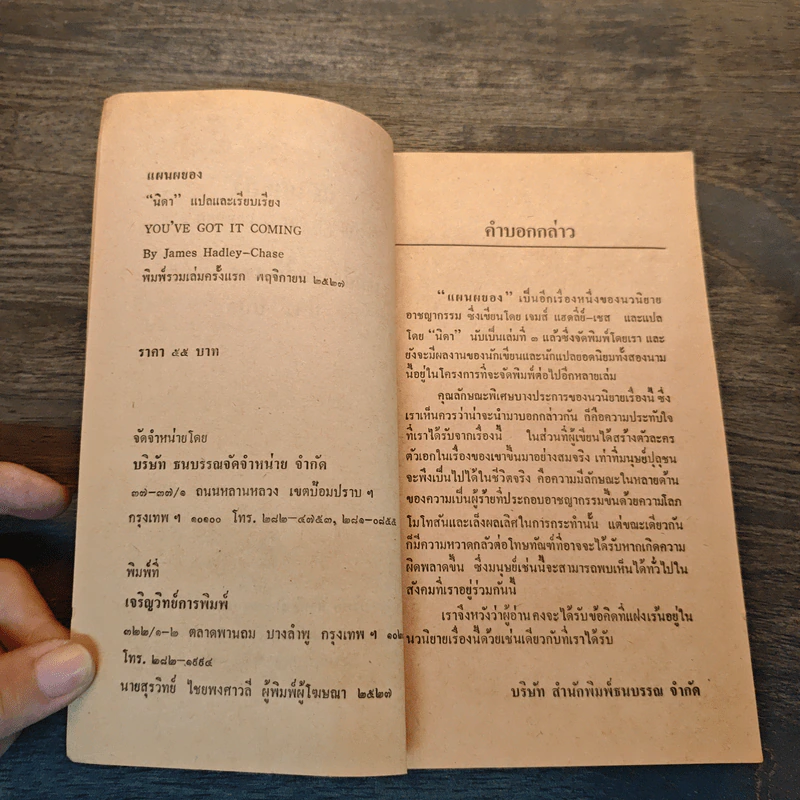 แผนผยอง
"นิดา" แปลและเรียบเรียง
YOU'VE GOT IT COMING
By James Hadley-Chase
พิมพ์รวมเล่มครั้งแรก พฤจิกายน ๒๕๒๗
ราคา ๕๕ บาท
จัดจำหน่ายโดย
บริษัท ธนบรรณจัดจำหน่าย จำกัด
๓๗-๓๗/๑ ถนนหลานหลวง เขตป้อมปราบ ฯ
กรุงเทพ ฯ ๑๐๑๐๐ โทร. ๒๘๒-๔๗๕๓, ๒๘๑-๐๘๕๕
พิมพ์ที่
เจริญวิทย์การพิมพ์
๓๒๒/๑-๒ ตลาดพานถม บางลำพู กรุงเทพ ฯ ๑๐๒
โทร. ๒๘๒-๑๙๙๔
นายสุรวิทย์ ไชยพงศาวลี ผู้พิมพ์ผู้โฆษณา ๒๕๒๗
คำบอกกล่าว
"แผนผยอง" เป็นอีกเรื่องหนึ่งของนวนิยาย
อาชญากรรม ซึ่งเขียนโดย เจมส์ แฮดลี่ย์-เชส และแปล
โดย "นิดา" นับเป็นเล่มที่ ๓ แล้วซึ่งจัดพิมพ์โดยเรา และ
ยังจะมีผลงานของนักเขียนและนักแปลยอดนิยมทั้งสองนาม
นี้อยู่ในโครงการที่จะจัดพิมพ์ต่อไปอีกหลายเล่ม
คุณลักษณะพิเศษบางประการของนวนิยายเรื่องนี้ ซึ่ง
เราเห็นควรว่าน่าจะนำมาบอกกล่าวกัน ก็คือความประทับใจ
ที่เราได้รับจากเรื่องนี้ ในส่วนที่ผู้เขียนได้สร้างตัวละคร
ตัวเอกในเรื่องของเขาขึ้นมาอย่างสมจริง เท่าที่มนุษย์ปุถุชน
จะพึงเป็นไปได้ในชีวิตจริง คือความมีลักษณะในหลายด้าน
ของความเป็นผู้ร้ายที่ประกอบอาชญากรรมขึ้นด้วยความโลภ
โมโทสันและเล็งผลเลิศในการกระทำนั้น แต่ขณะเดียวกัน
ก็มีความหวาดกลัวต่อโทษทัณฑ์ที่อาจจะได้รับหากเกิดความ
ผิดพลาดขึ้น ซึ่งมนุษย์เช่นนี้จะสามารถพบเห็นได้ทั่วไปใน
สังคมที่เราอยู่ร่วมกันนี้
เราจึงหวังว่าผู้อ่านคงจะได้รับข้อคิดที่แฝงเร้นอยู่ใน
นวนิยายเรื่องนี้ด้วยเช่นเดียวกับที่เราได้รับ
บริษัท สำนักพิมพ์ธนบรรณ จำกัด